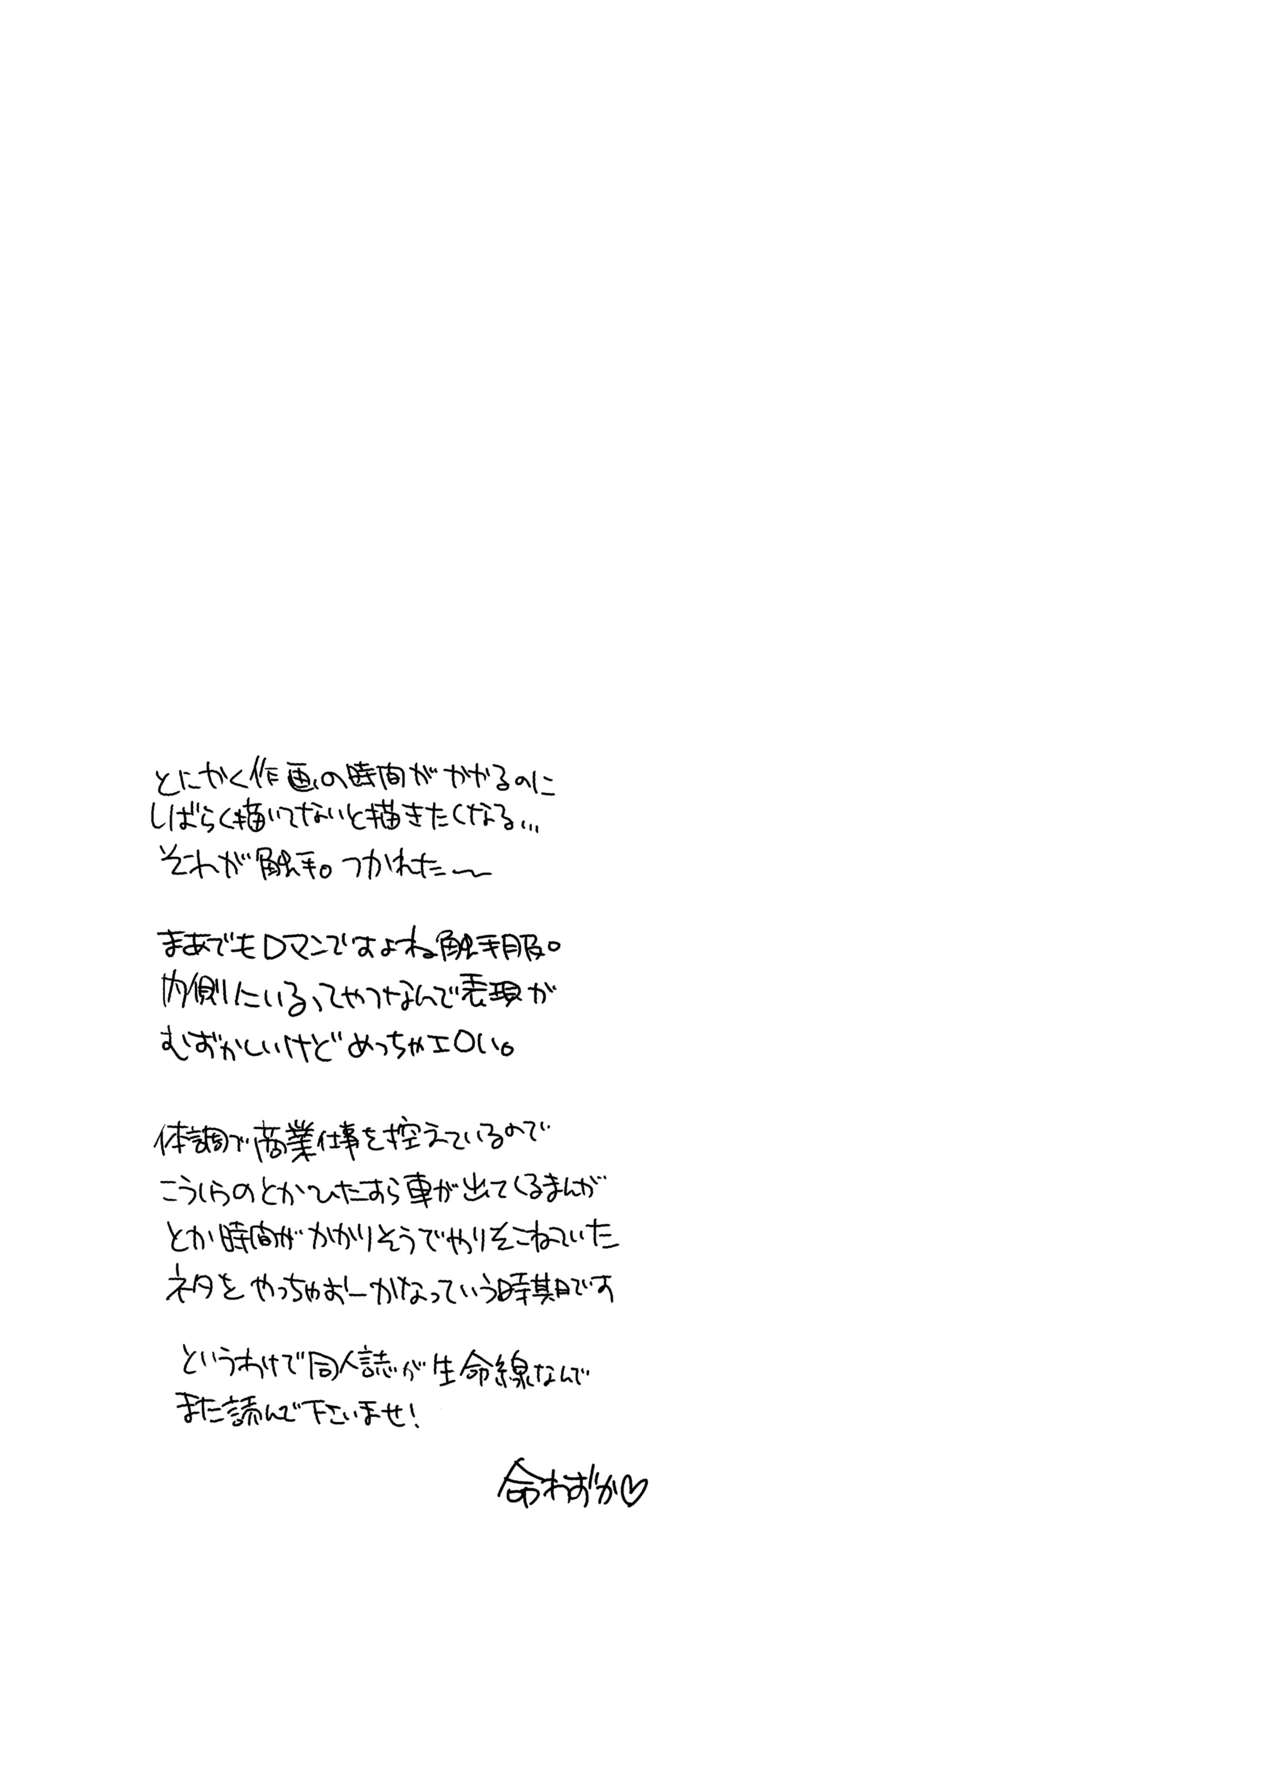 とにかく作画の時間がかかるのに
しばらく描いてないと描きたくなる...
それが触手。つかれた〜
まあでもロマンですよね触手服。
内側にいるってやつなんで表現が
むずかしいけどめっちゃエロい。
体調で商業仕事を控えているので
こうしうのとかひたすら車が出てくるまんが
とか時間がかかりそうでやりそこねていた
ネタをやっちゃおーかなっていう時期です
というわけで同人誌が生命線なんで
また読んで下さいませ!
命わずか♡